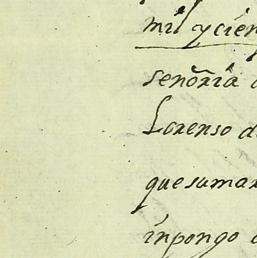 mil y cien
señoria
Lorenso d
que sumar
inpongo